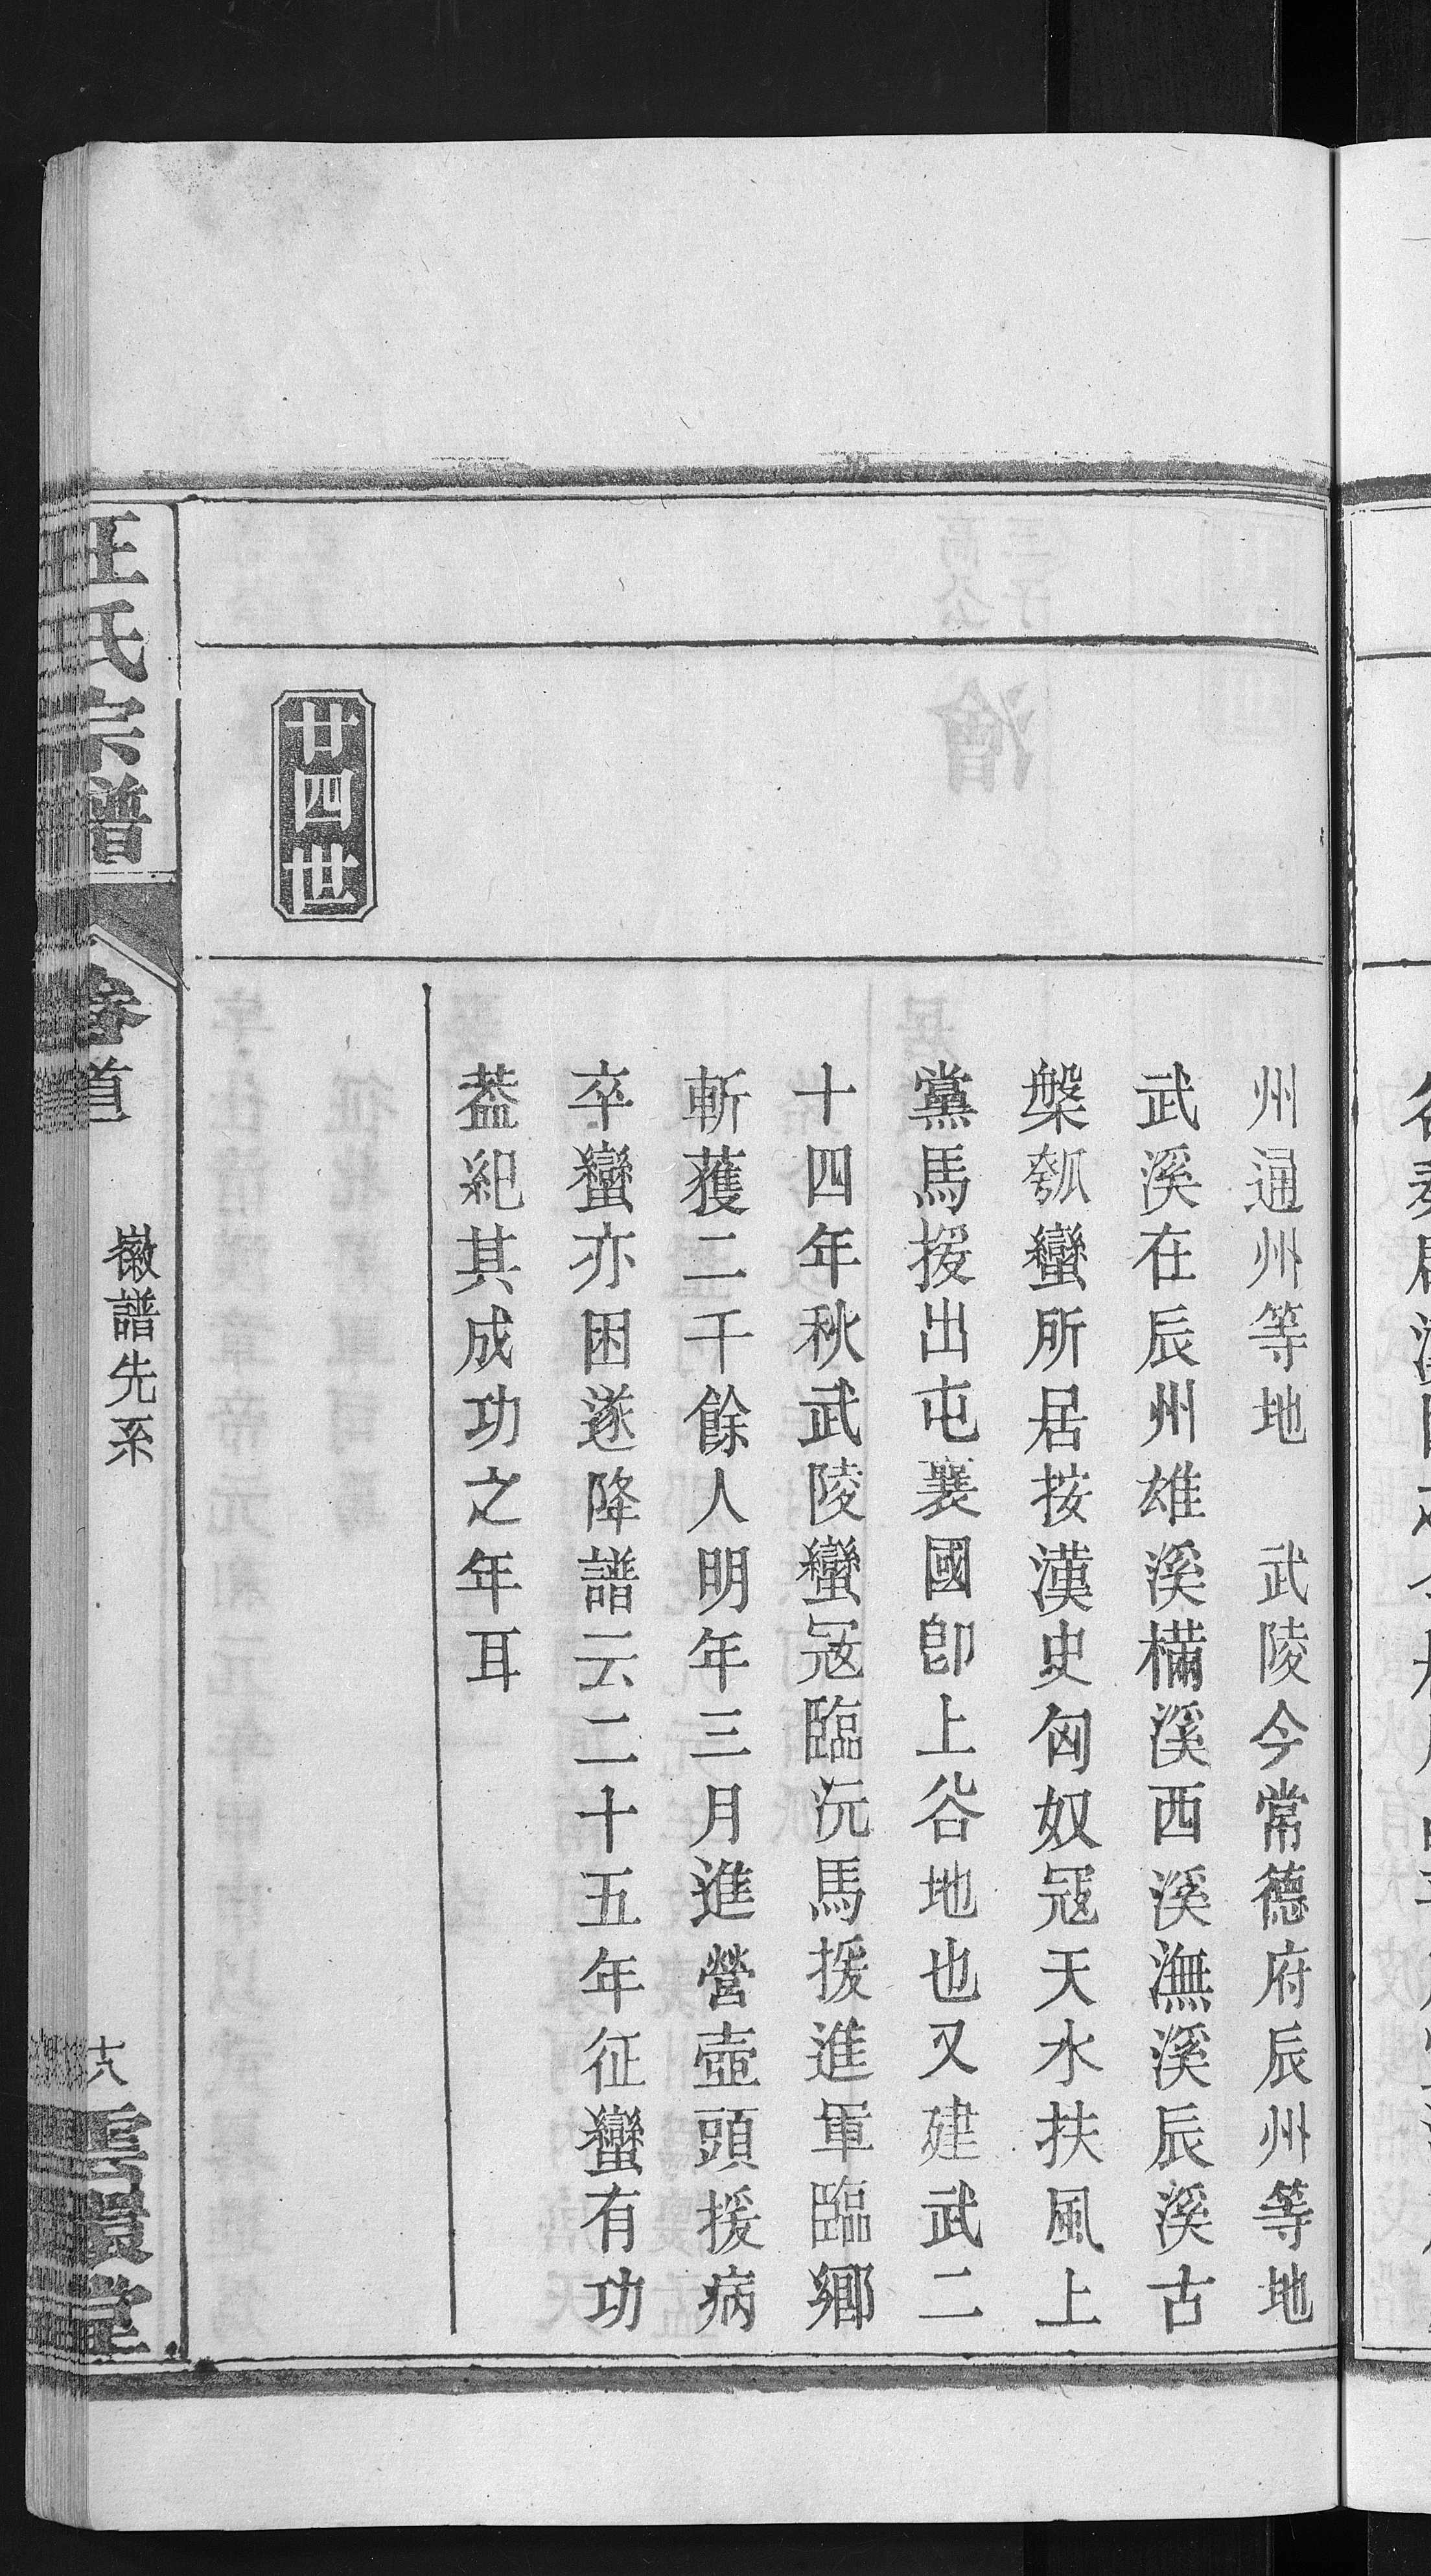 州通州等地　武陵今常德府辰州等地
武溪在辰州雄溪樠溪西溪潕溪辰溪古
槃瓠蠻所居按漢史匈奴冦天水扶風上
黨馬援出屯襄國卽上谷地也又建武二
十四年秋武陵蠻冦臨沅馬援進軍臨鄉
斬獲二千餘人明年三月進營壺頭援病
卒蠻亦困遂降譜云二十五年征蠻有功
葢紀其成功之年耳
廿四世
汪氏宗譜
卷首
徽譜先系
十八